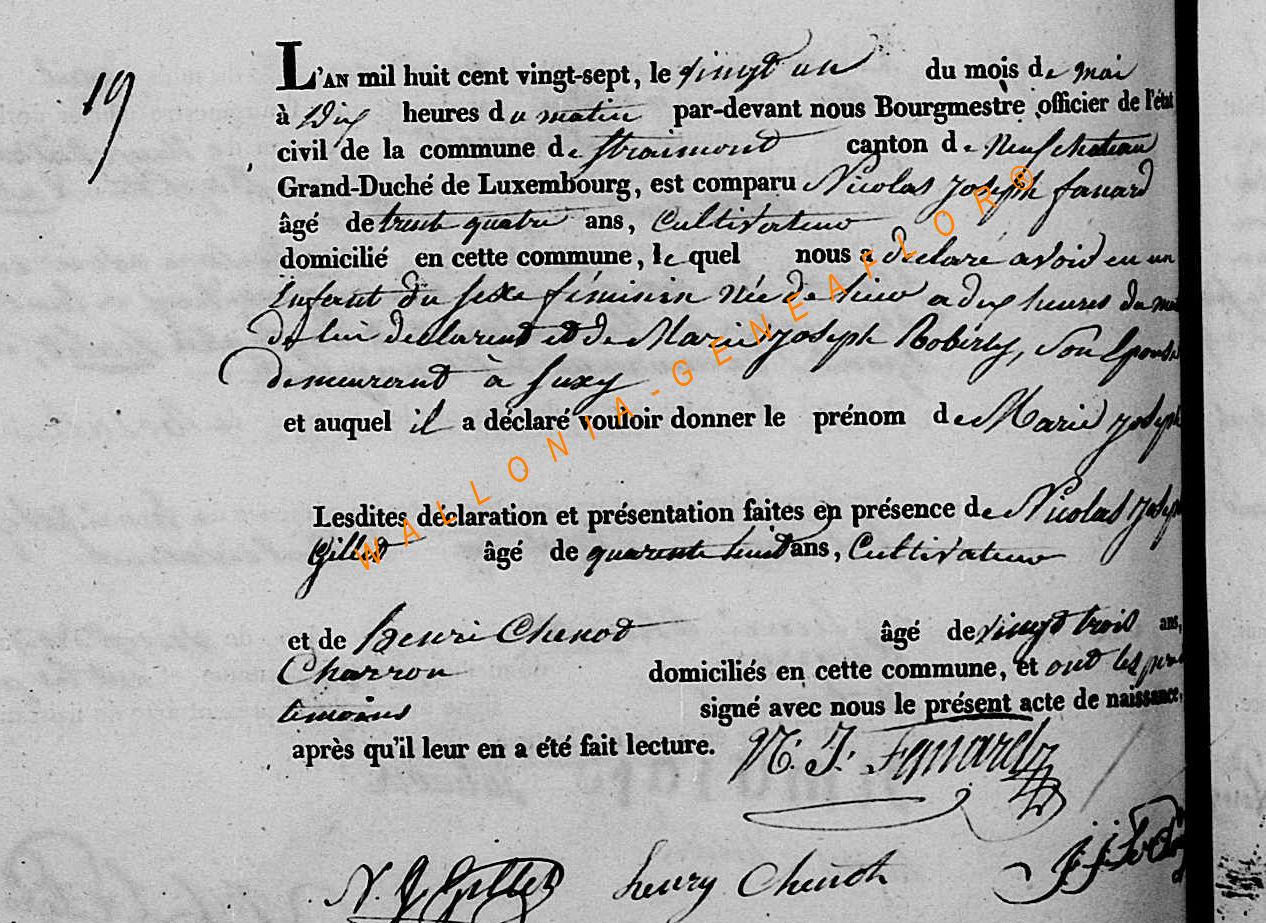 19
L'AN mil huit cent vingt-sept, le vingt un du mois de mai
à Dix heures du matin par-devant nous Bourgmestre officier de l'état
civil de la commune de Straimont canton de Neufchateau
Grand-Duché de Luxembourg, est comparu Nicolas Joseph fanard
âgé de trente quatre ans, Cultivateur
domicilié en cette commune, lequel nous a déclaré avoir eu un
Enfant du sexe féminin Née de hier a dix heures du
de lui declarant et de Marie Joseph Roberty, son Epouse
demeurant à Suxy
et auquel il a déclaré vouloir donner le prénom de Marie Joseph
Lesdites déclaration et présentation faites en présence de Nicolas Joseph
Gillet âgé de quarante huit ans, Cultivateur
et de Henri Chenot âgé de vingt trois ans,
Charron domiciliés en cette commune, et ont les
temoins signé avec nous le présent acte de naissance,
après qu'il leur en a été fait lecture. N. J. Fanard
N. J. Gillet henry Chenot
WALLONIA-GENEAFLOR®